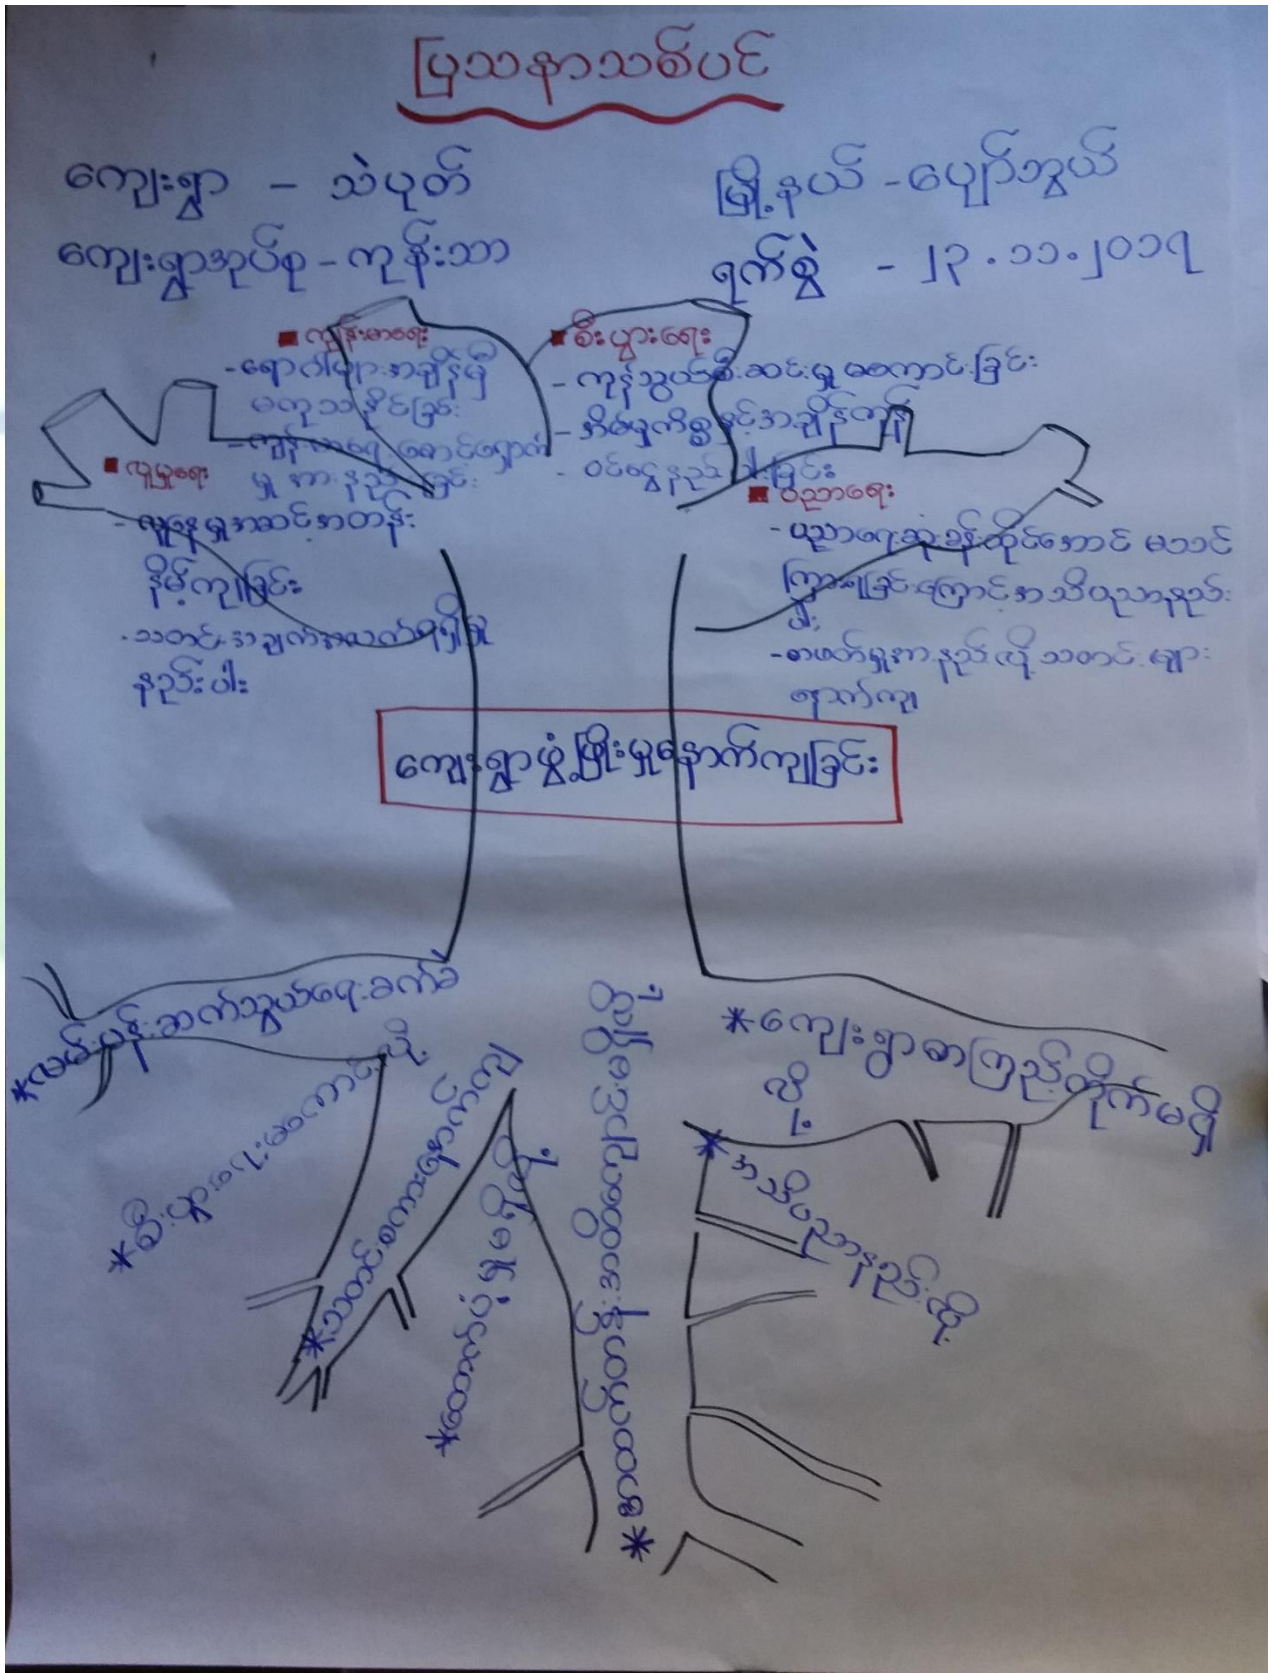 ပြဿနာသစ်ပင်
ကျေးရွာ - သဲပုတ်
မြို့နယ် - ပျော်ဘွယ်
ကျေးရွာအုပ်စု - ကုန်းသာ
ရက်စွဲ - ၂၃.၁၁.၂၀၁၇
ကျန်းမာရေး
- ရောဂါများအချိန်မှီ
မကုသနိုင်ခြင်း
- ကျန်းမာရေးစောင့်ရှောက်
မှုအားနည်းခြင်း
စီးပွားရေး
- ကုန်သွယ်စီးဆင်းမှုမကောင်းခြင်း
- အိမ်မှုကိစ္စနှင့်အချိန်ကုန်
- ဝင်ငွေနည်းပါးခြင်း
လူမှုရေး
- လူနေမှုအဆင့်အတန်း
နိမ့်ကျခြင်း
- သတင်းအချက်အလက်ရရှိမှု
နည်းပါး
ပညာရေး
- ပညာရေးဆုံးခန်းတိုင်အောင် မသင်
ကြားရခြင်းကြောင့်အသိပညာနည်း
ပါး
- စာဖတ်မှုအားနည်းလို့သတင်းများ
နောက်ကျ
ကျေးရွာဖွံ့ဖြိုးမှုနောက်ကျခြင်း
*လမ်းပန်းဆက်သွယ်ရေးခက်ခဲ
*စီးပွားရေးမကောင်းလို့
*သတင်းစကားနောက်ကျ
*ထောက်ပံ့မှုမရှိလို့
*ကျေးရွာစာကြည့်တိုက်မရှိ
လို့
*အသိပညာနည်းလို့